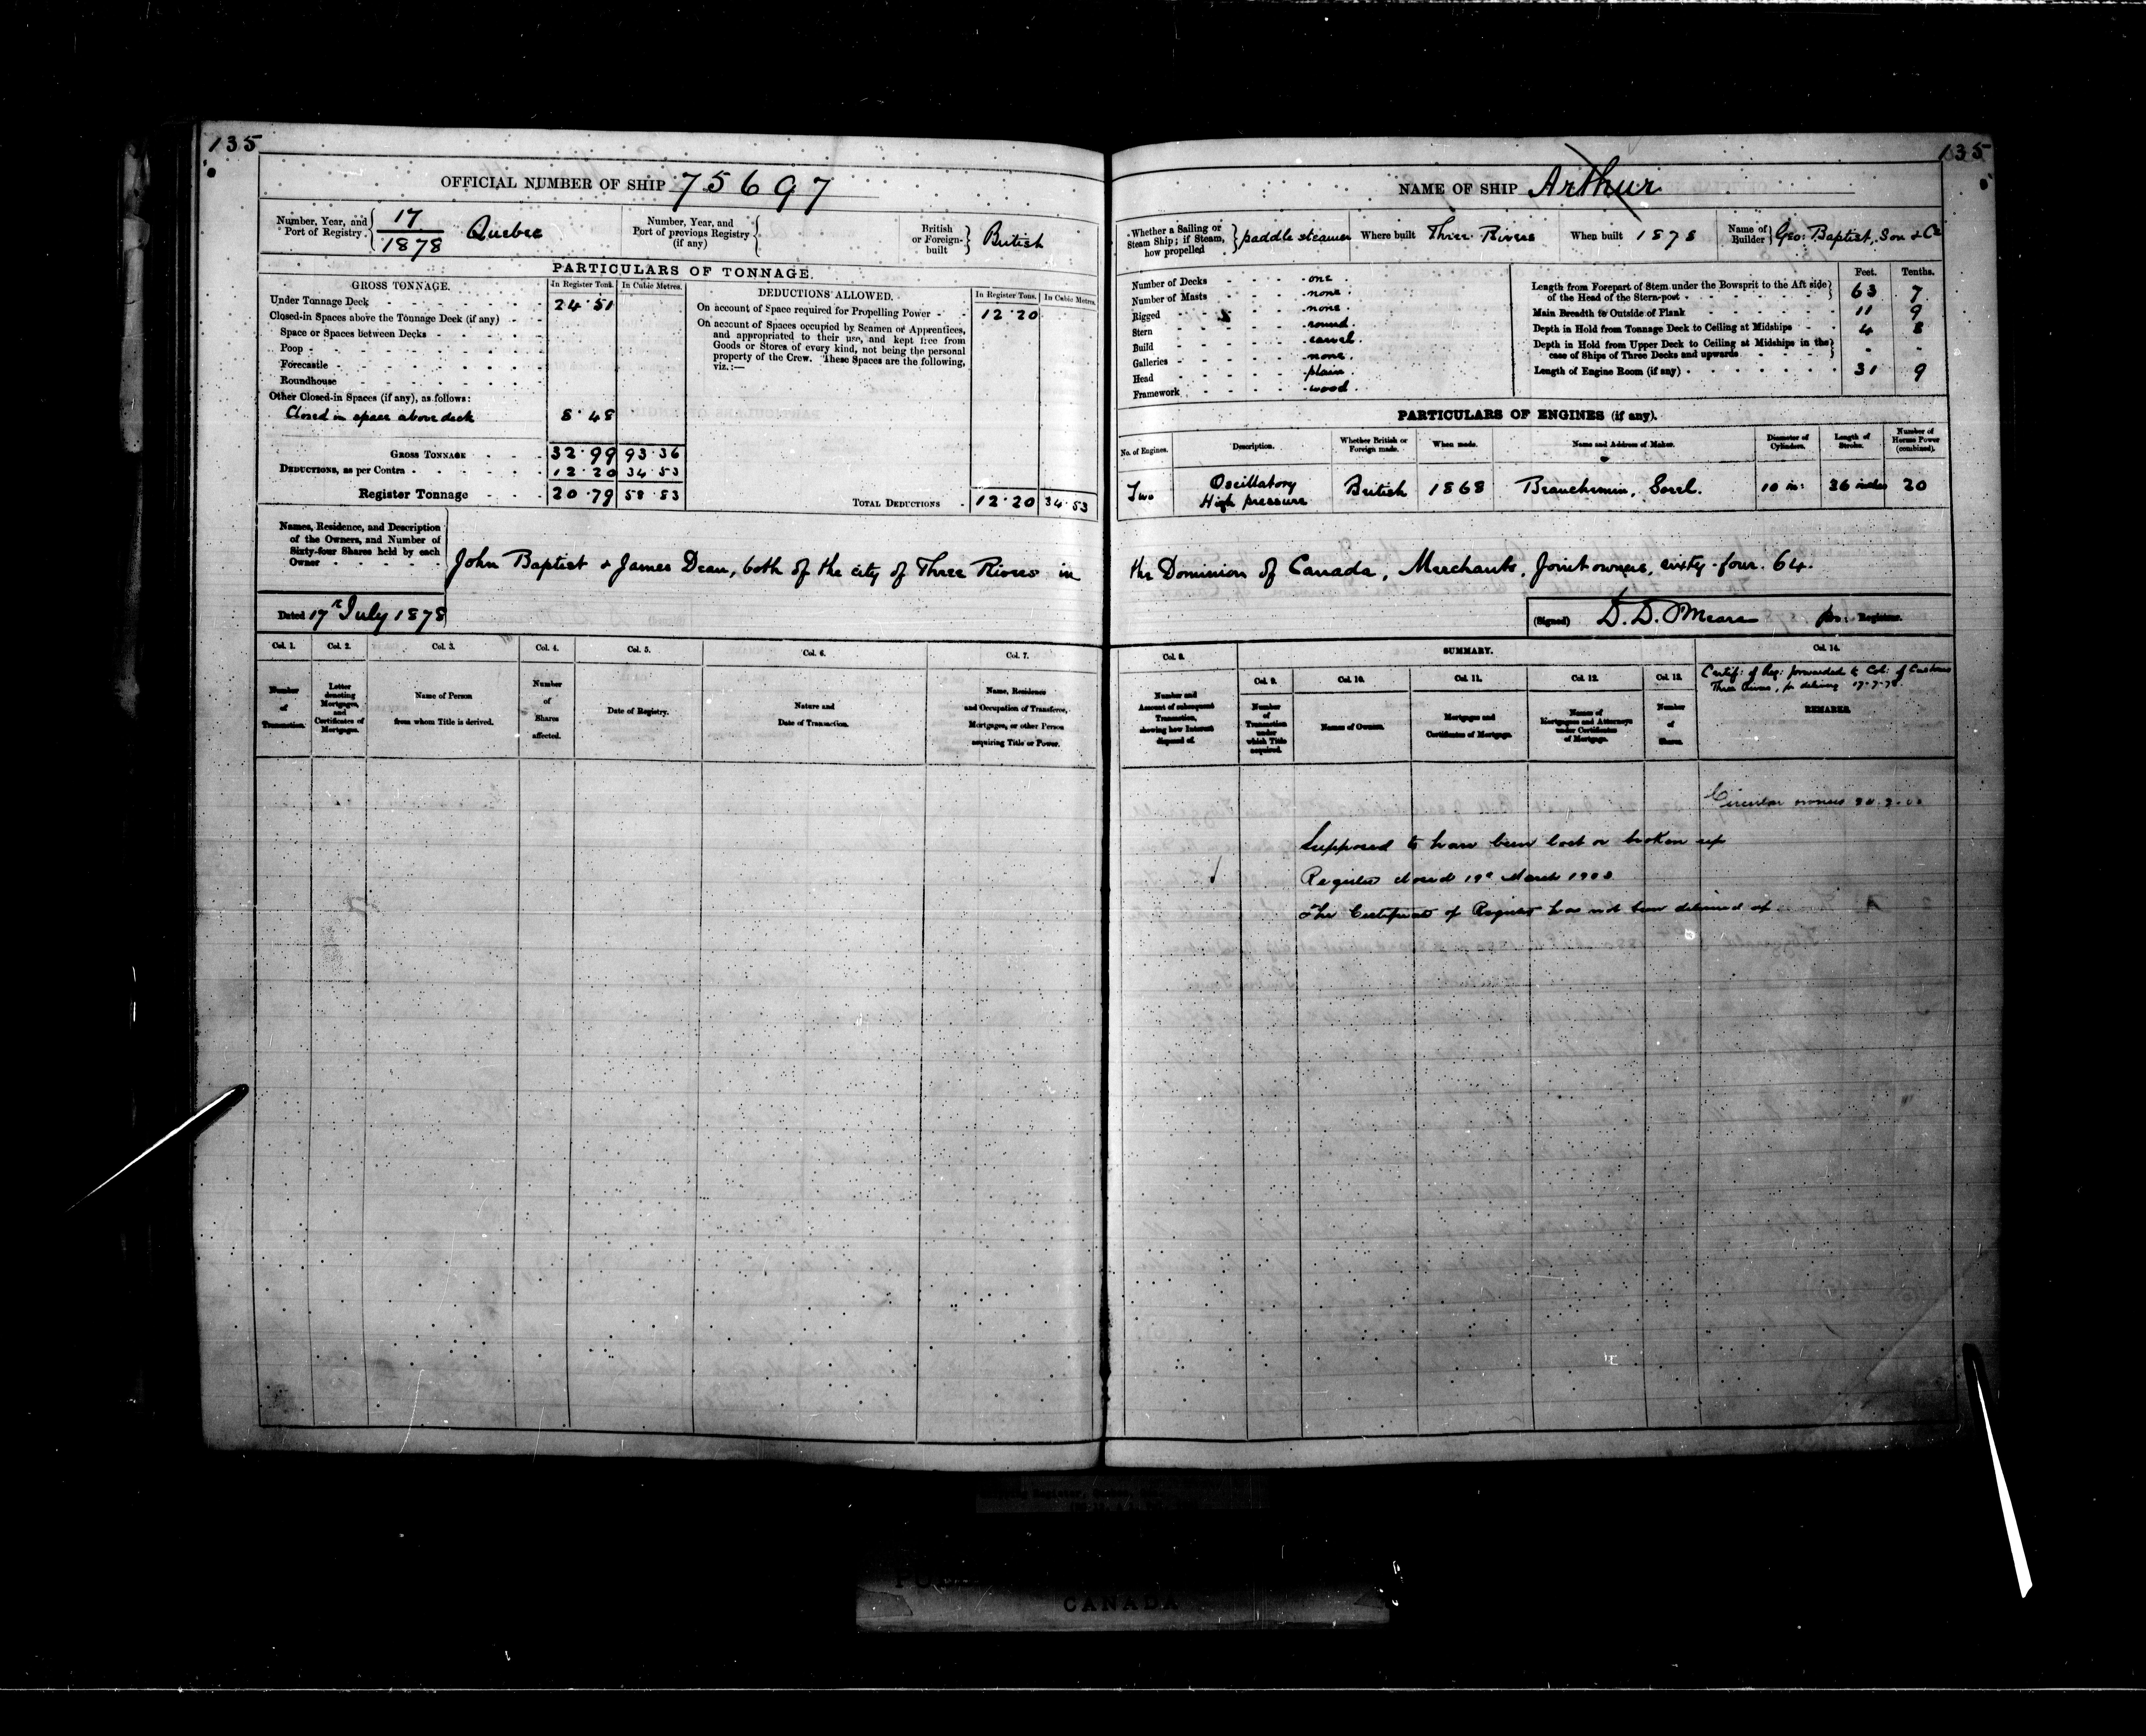 135
135
OFFICIAL NUMBER OF SHIP 75697
Number, Year, and Port of Registry. 17/1878 Quebec
Number, Year, and Port of previous Registry (if any)
British or Foreign-built British
PARTICULARS OF TONNAGE.
GROSS TONNAGE. In Register Tons. In Cubic Metres.
Under Tonnage Deck 24.51
Closed-in Spaces above the Tonnage Deck (if any)
Space or Spaces between Decks
Poop
Forecastle
Roundhouse
Other Closed-in Spaces (if any), as follows:
Closed in space above deck 8.48
GROSS TONNAGE 32.99 93.36
DEDUCTIONS, as per Contra 12.20 34.53
Register Tonnage 20.79 58.83
DEDUCTIONS ALLOWED. In Register Tons. In Cubic Metres.
On account of Space required for Propelling Power 12.20
On account of Spaces occupied by Seamen or Apprentices,
and appropriated to their use, and kept free from
Goods or Stores of every kind, not being the personal
property of the Crew. These Spaces are the following,
viz.:—
TOTAL DEDUCTIONS 12.20 34.53
NAME OF SHIP Arthur
Whether a Sailing or Steam Ship; if Steam, how propelled paddle steamer
Where built Three Rivers
When built 1878
Name of Builder Geo: Baptist, Son & Co
Number of Decks one.
Number of Masts none.
Rigged none.
Stern round.
Build carvel.
Galleries none.
Head plain.
Framework wood.
Feet. Tenths.
Length from Forepart of Stem under the Bowsprit to the Aft side of the Head of the Stern-post 63 7
Main Breadth to Outside of Plank 11 9
Depth in Hold from Tonnage Deck to Ceiling at Midships 4 8
Depth in Hold from Upper Deck to Ceiling at Midships in the case of Ships of Three Decks and upwards - -
Length of Engine Room (if any) 31 9
PARTICULARS OF ENGINES (if any).
No. of Engines. Description. Whether British or Foreign made. When made. Name and Address of Maker. Diameter of Cylinders. Length of Stroke. Number of Horse Power (combined).
Two Oscillatory High pressure British 1868 Beauchemin, Sorel. 10 in: 36 inches 20
Names, Residence, and Description
of the Owners, and Number of
Sixty-four Shares held by each
Owner
John Baptist & James Dean, both of the city of Three Rivers in the Dominion of Canada, Merchants, Joint owners, sixty-four. 64.
Dated 17th July 1878
(Signed) D. D. O'Meara pro: Registrar.
Col. 1. Col. 2. Col. 3. Col. 4. Col. 5. Col. 6. Col. 7.
Number of Transaction.
Letter denoting Mortgages, and Certificates of Mortgages.
Name of Person from whom Title is derived.
Number of Shares affected.
Date of Registry.
Nature and Date of Transaction.
Name, Residence and Occupation of Transferee, Mortgagee, or other Person acquiring Title or Power.
Col. 8. SUMMARY. Col. 14.
Col. 9. Col. 10. Col. 11. Col. 12. Col. 13.
Number and Account of subsequent Transaction, showing how Interest disposed of.
Number of Transaction under which Title acquired.
Names of Owners.
Mortgages and Certificates of Mortgage.
Names of Mortgagees and Attorneys under Certificates of Mortgage.
Number of Shares.
Certif: of Reg: forwarded to Col: of Customs
Three Rivers, for delivery 17-7-78.
REMARKS.
Circular owners
Supposed to have been lost or broken up
Register closed 19th March 1908
The Certificate of Register has not been delivered up.
CANADA